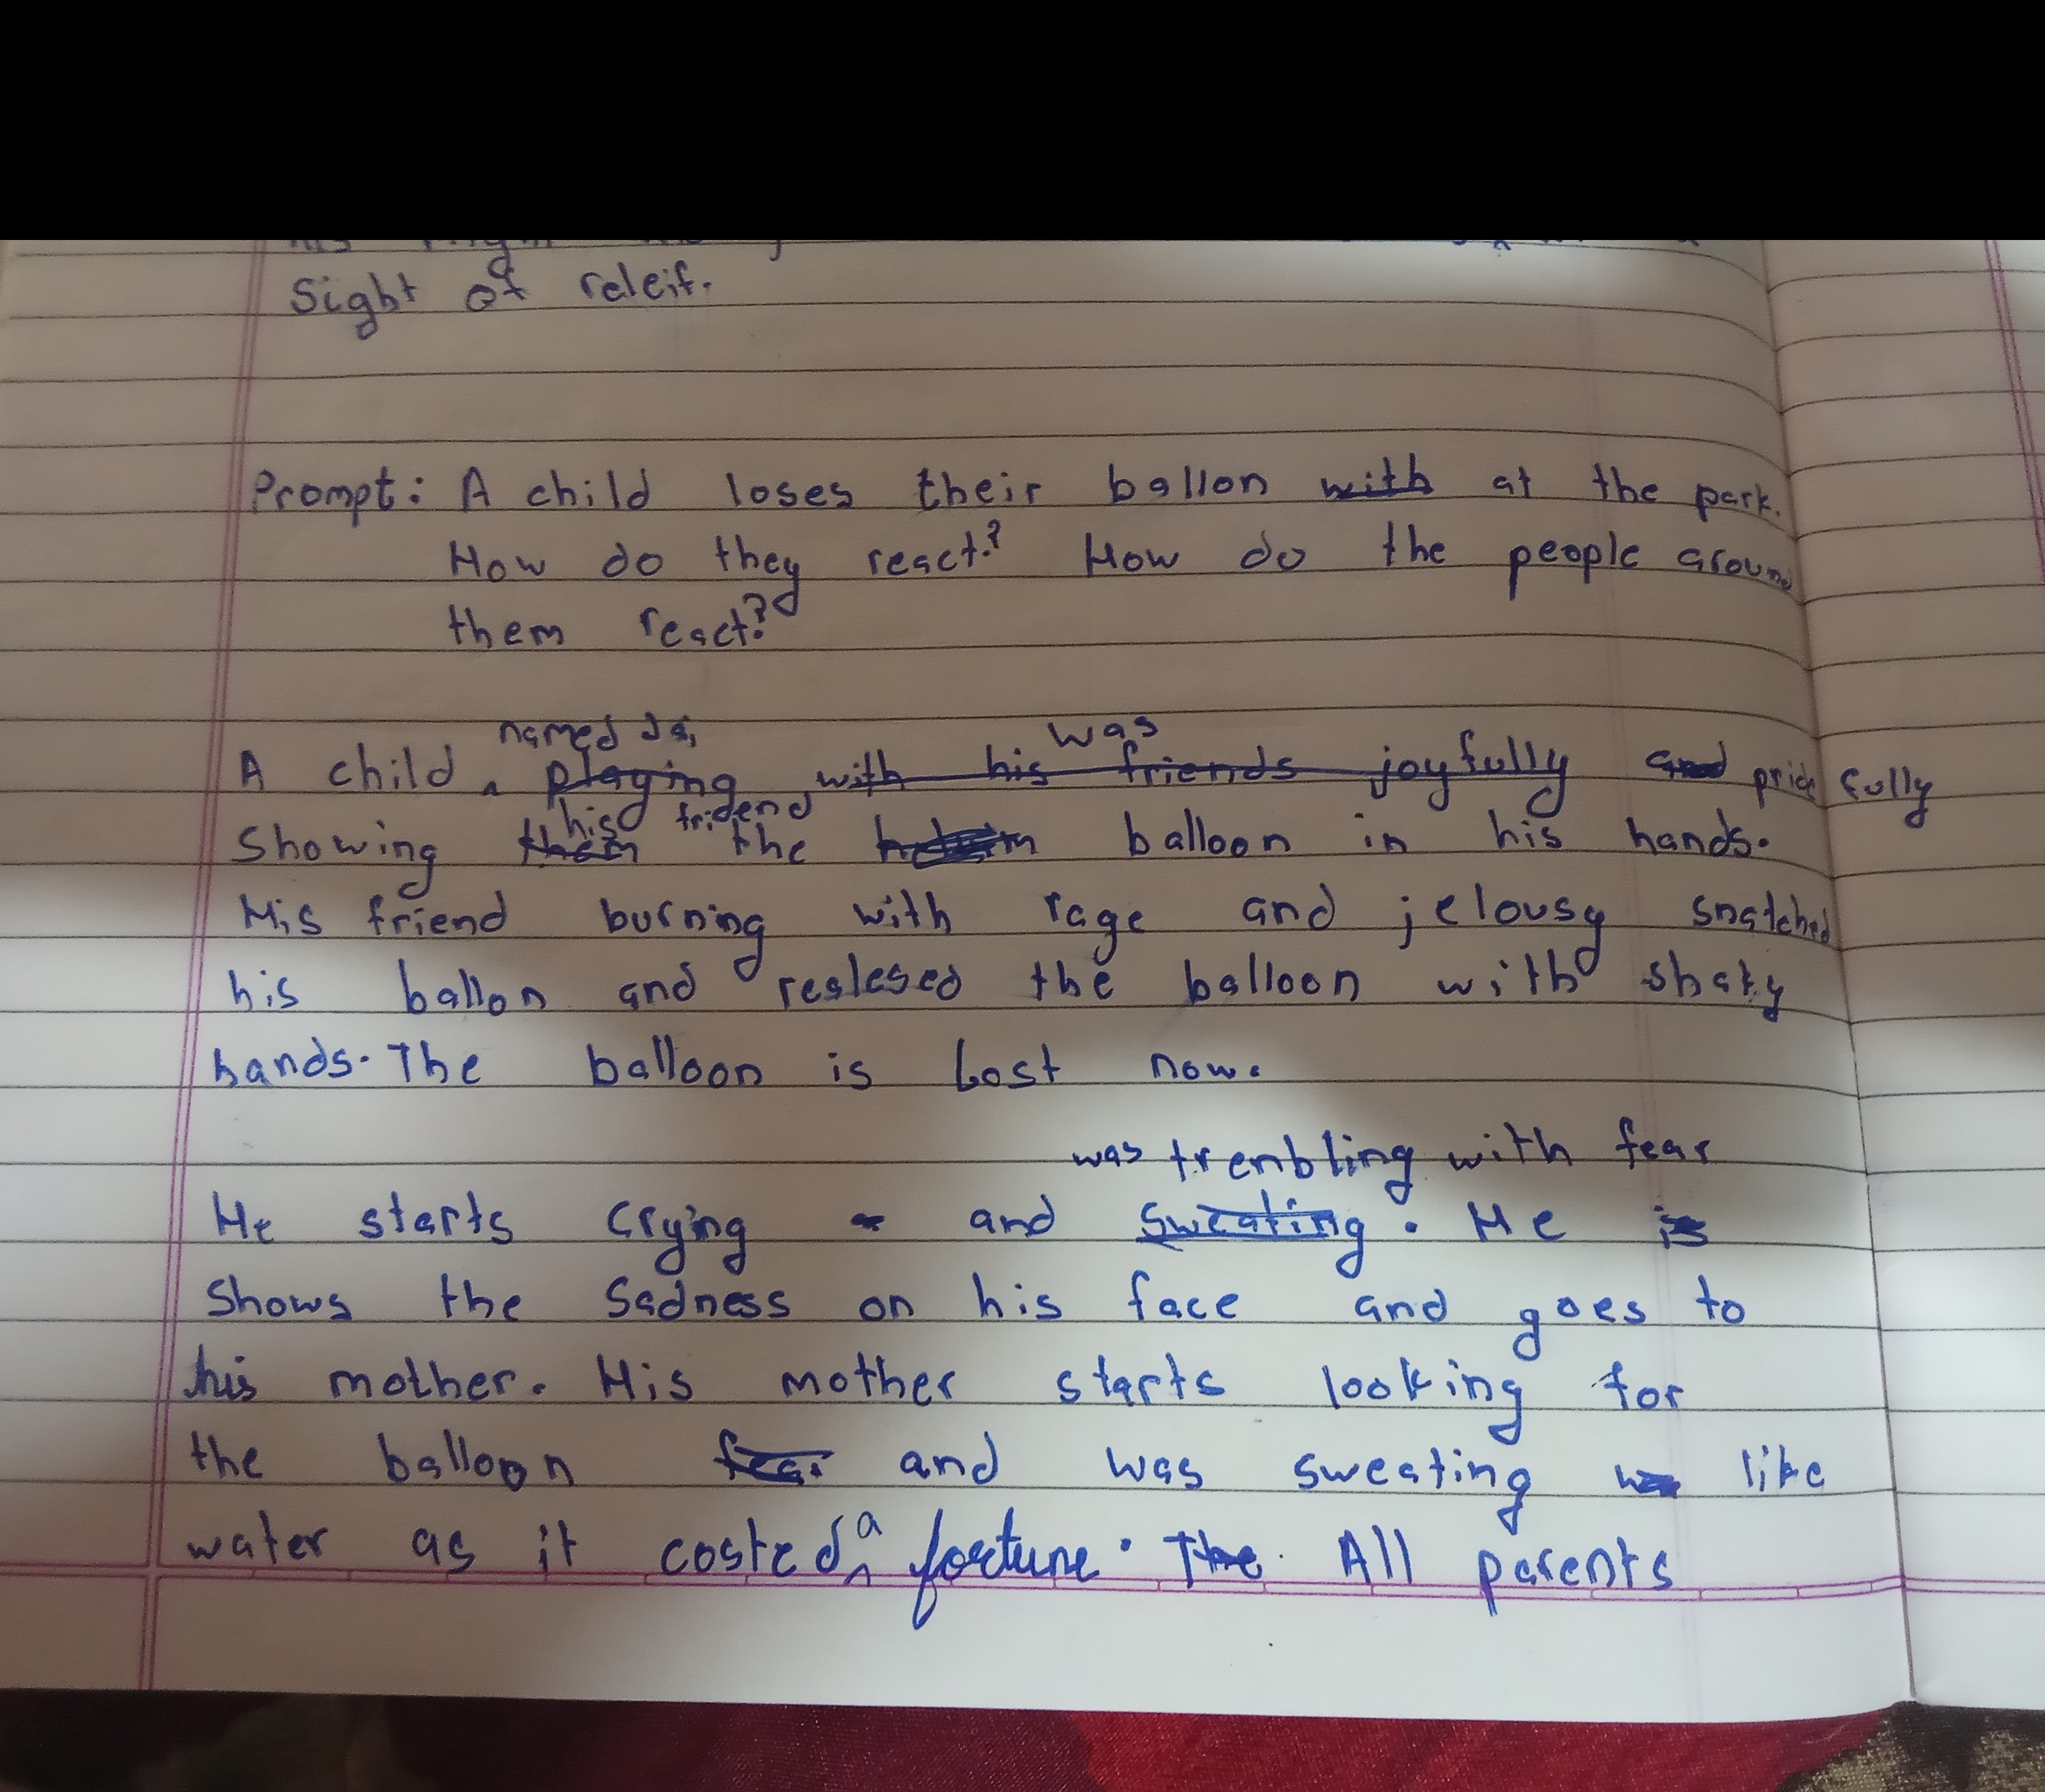 Sight of releif.
Prompt: A child loses their ballon with at the park.
How do they react? How do the people around
them react?
named Jai, was
A child playing with his friends joyfully and pridefully
his fridend
showing them the balloon in his hands.
His friend burning with rage and jelousy snatched
his ballon and realesed the balloon with shaky
hands. The balloon is Lost now.
was trenbling with fear
He starts crying and sweating. He is
shows the sadness on his face and goes to
his mother. His mother starts looking for
the balloon fear and was sweating like
water as it costed a fortune. The All parents